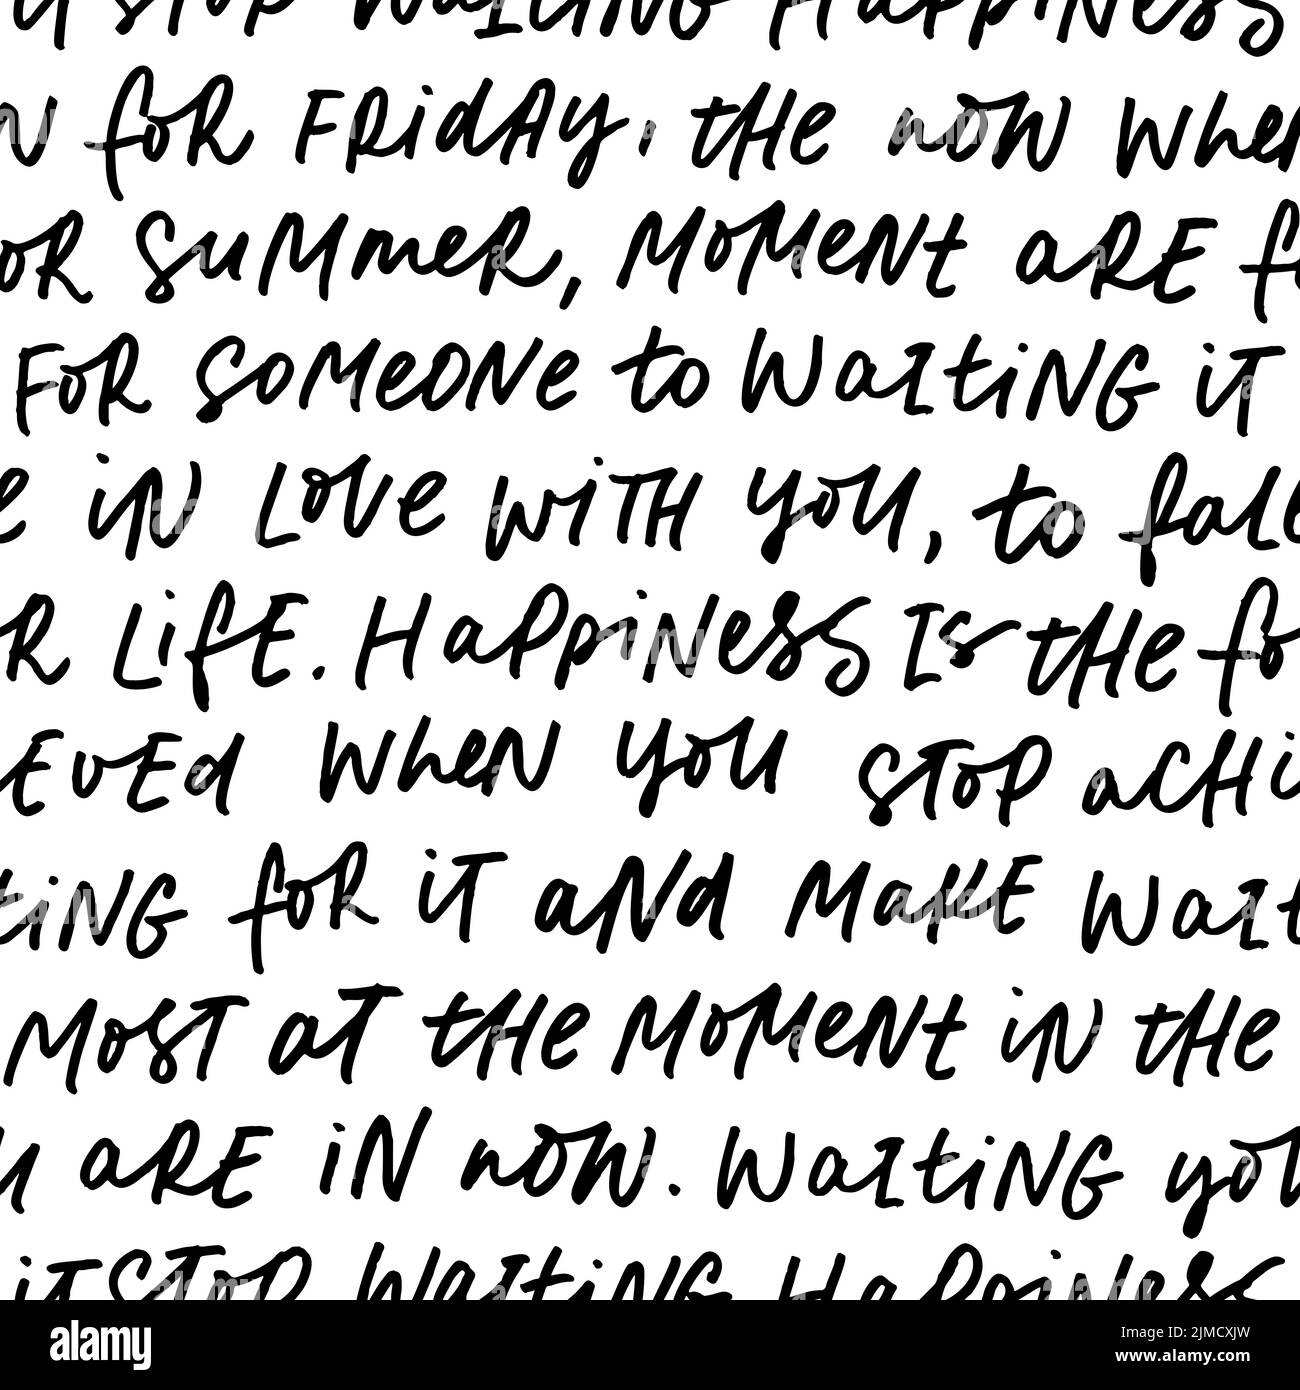 STOP WAITING HAPPINESS
N for FRidAy, the now when
OR SUMMER, MOMENT ARE f
FOR SOMEONE to WAITING iT
e iN LOVE WiTH you, to fall
R LifE. HAppiNess Is the fo
EVEd when you STOP ACHi
tiNG for iT ANd MAKE WAIt
MOST AT the MOMENT iN the
u ARE iN NOW. WAItiNG you
iT STOP WAItiNG HAppiNess
alamy
Image ID: 2JMCXJW
www.alamy.com